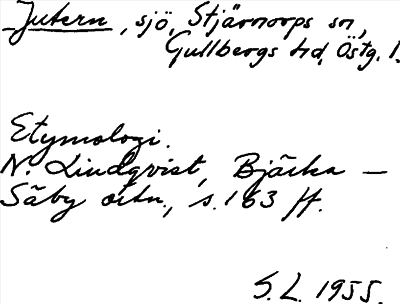 Jutern, sjö, Stjärnorps sn,
Gullbergs hd, Östg. l.
Etymologi.
N. Lindqvist, Bjärka –
Säby ortn., s. 163 ff.
S. L. 1955.